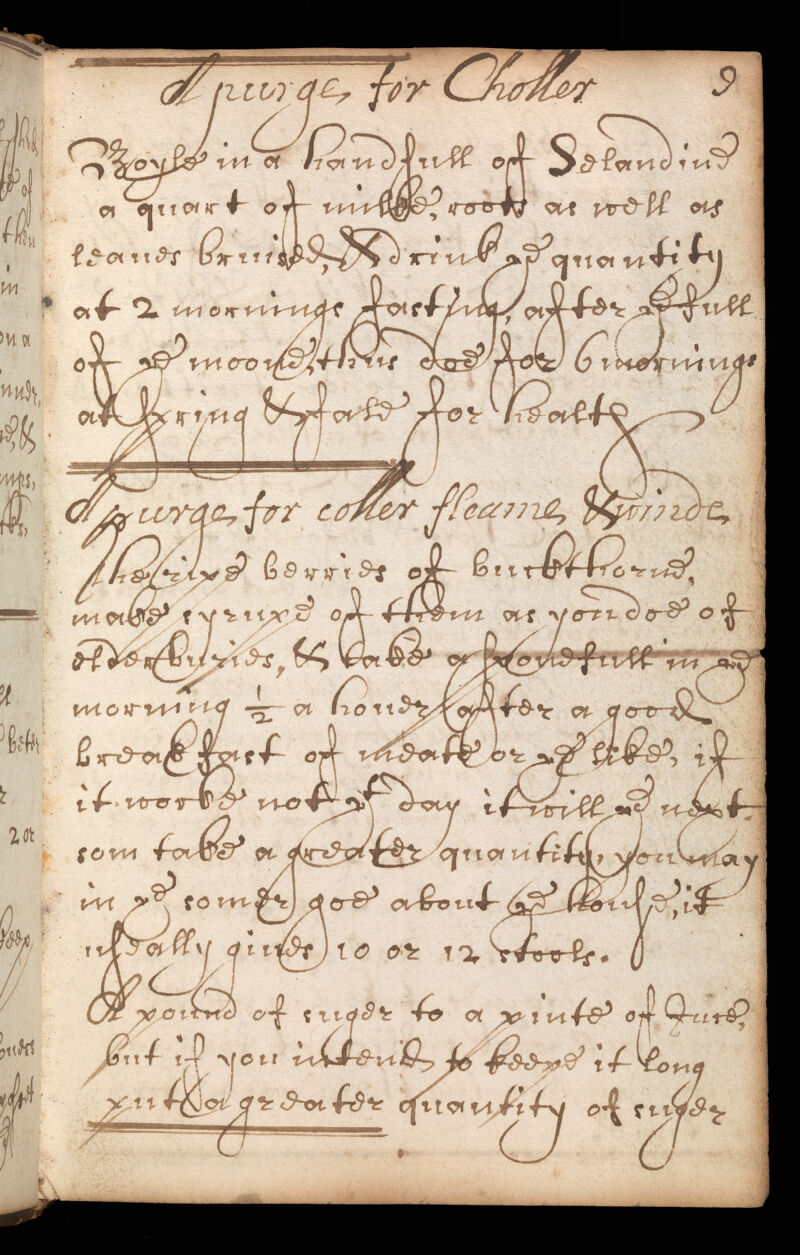 A purge for Choller 9
Boyle in a handfull of Selandine
a quart of milke, roots as well as
leaves brused, & drink ye quantity
at 2 mornings fasting, after ye full
of ye moone, thus doe for 6 mornings
at spring & fale for health
A purge for coller fleame & winde
The ripe berries of buckthorne,
make syrupe of them as you doe of
elderburies, & take a sponefull in ye
morning ½ a houer after a good
breakfast of meate or ye like, if
it worke not yt day it will ye next.
som take a greater quantity, you may
in ye somer goe about ye house, it
useally gives 10 or 12 stools.
A pound of suger to a pinte of Juce,
but if you intend to keepe it long
put a greater quantity of suger